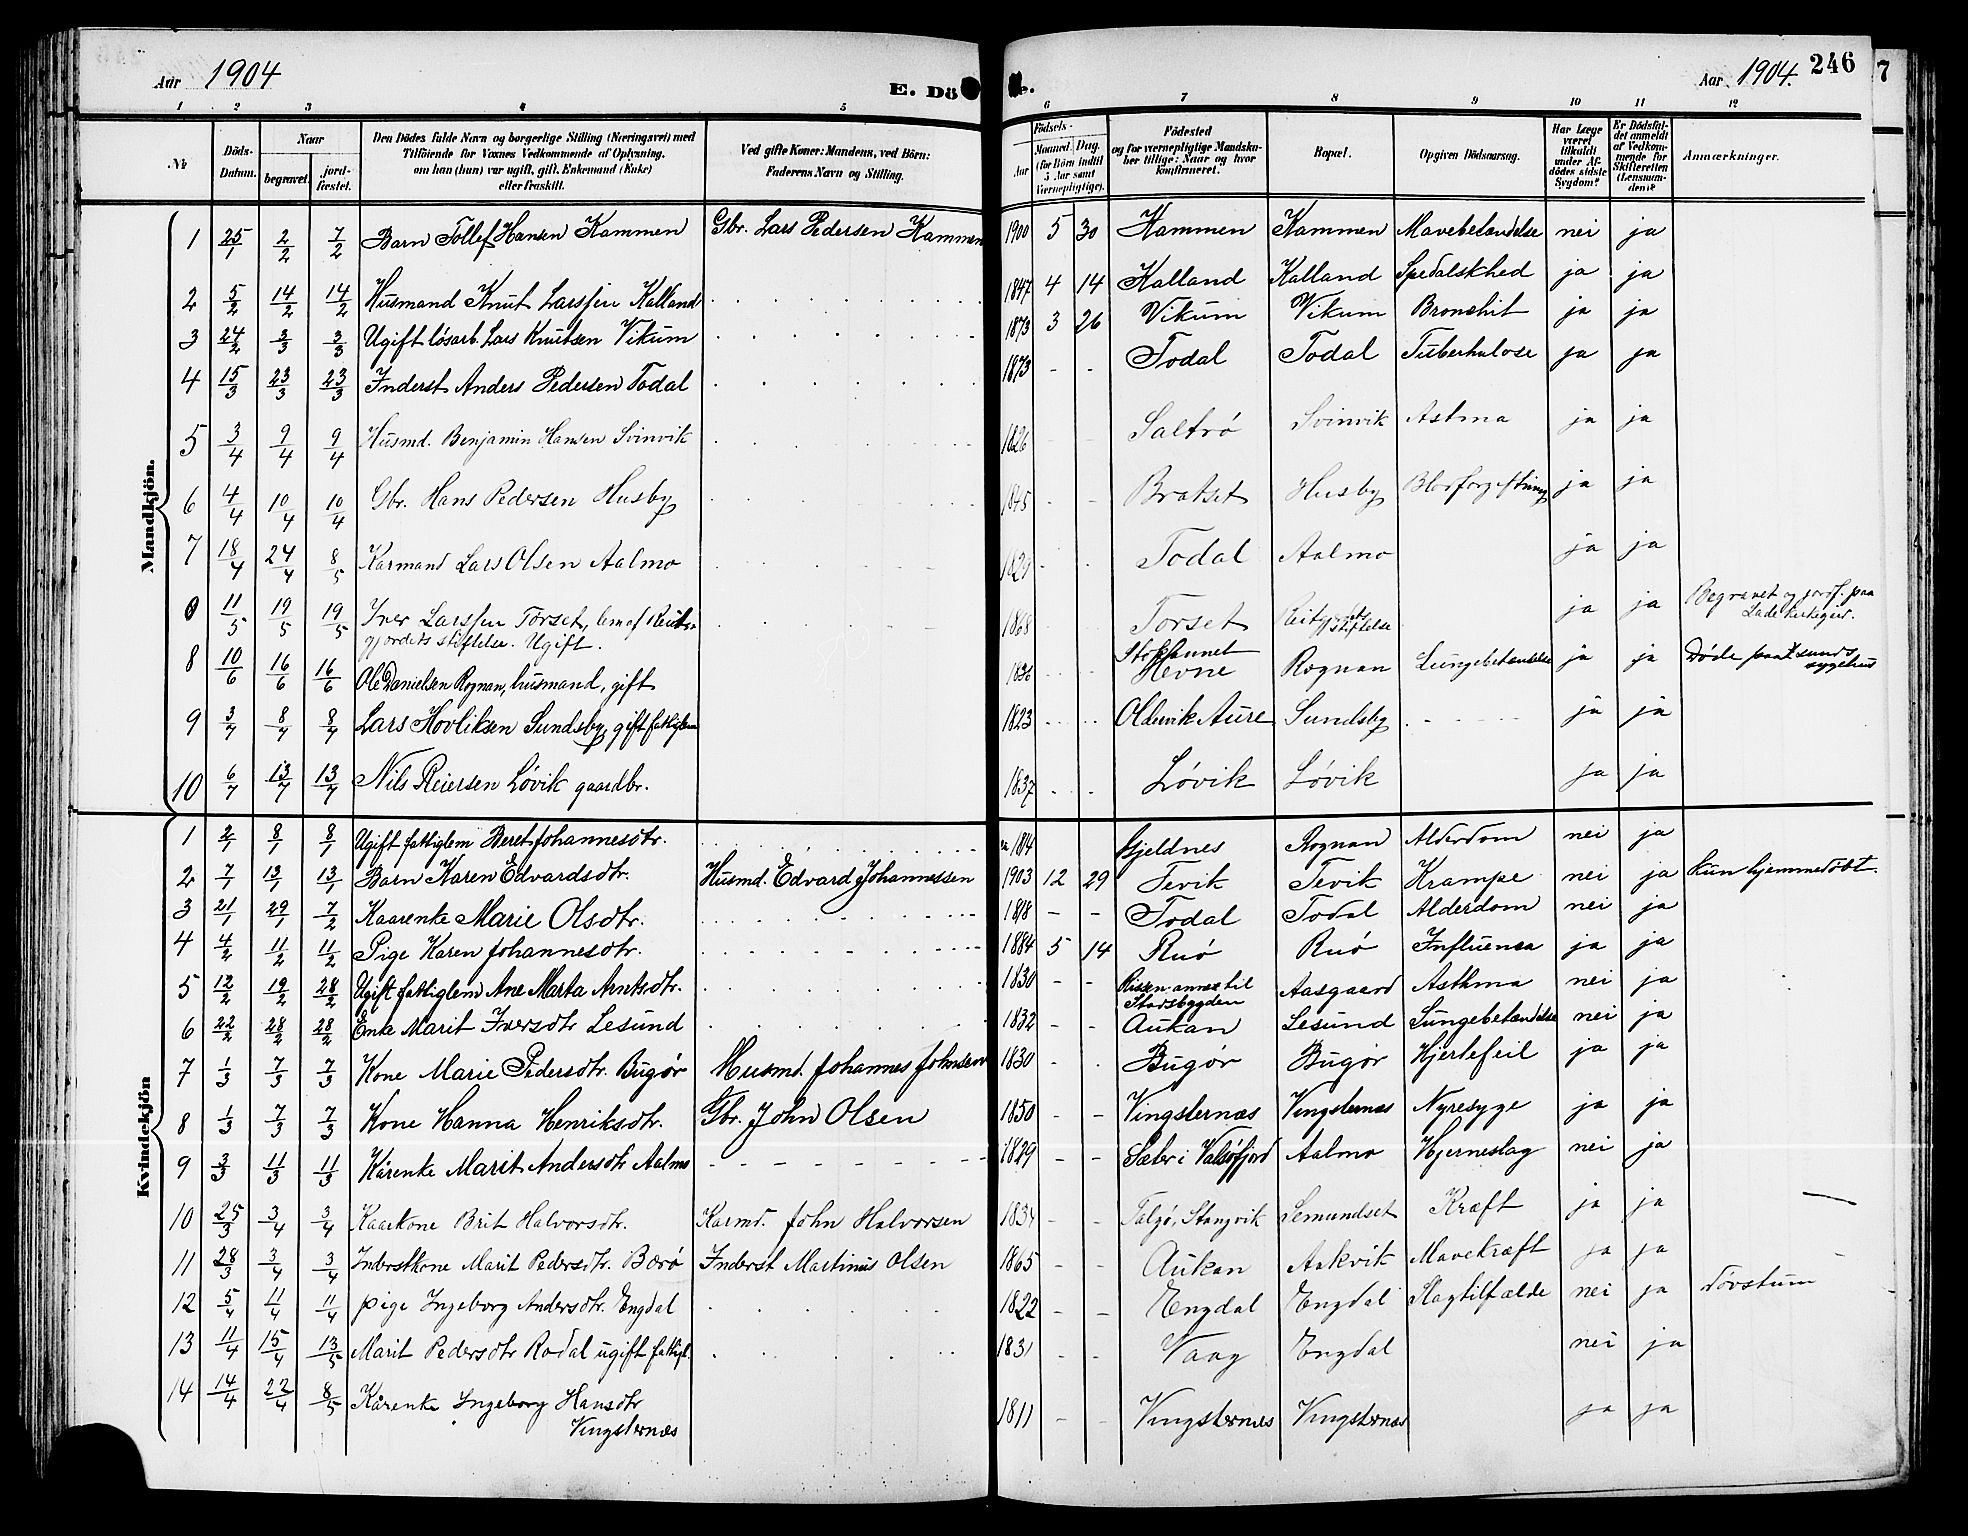 Aar 1904 E. Dö e. Aar 1904. 246 7
1 2 3 4 5 6 7 8 9 10 11 12
No Döds-Datum. Naar begravet. jord-fæstet. Den Dödes fulde Navn og borgerlige Stilling (Næringsvei) med Tilföiende for Voxnes Vedkommende af Oplysning, om han (hun) var ugift, gift, Enkemand (Enke) eller fraskilt. Ved gifte Koner: Mandens, ved Börn: Faderens Navn og Stilling. Födsels- Aar Maaned Dag. (for Börn indtil 5 Aar samt Værnepligtige). Födested og for værnepligtige Mandskaber tillige: Naar og hvor konfirmeret. Bopæl. Opgiven Dödsaarsag. Har Læge været tilkaldt under Afdödes sidste Sygdom? Er Dödsfaldet anmeldt af Vedkommende for Skifteretten (Lensmanden)? Anmærkninger.
Mandkjön.
1 25/1 2/2 7/2 Barn Tollef Hansen Kammen Gbr. Lars Pedersen Kammen 1900 5 30 Kammen Kammen Mavebetændelse nei ja
2 5/2 14/2 14/2 Husmand Knut Larssen Kalland 1847 4 14 Kalland Kalland Spedalskhed ja ja
3 24/2 3/3 3/3 Ugift løsarb. Lars Knutsen Vikum 1873 3 26 Vikum Vikum Bronchit ja ja
4 15/3 23/3 23/3 Inderst Anders Pedersen Todal 1873 - - Todal Todal Tuberkulose ja ja
5 3/4 9/4 9/4 Husmd. Benjamin Hansen Svinvik 1826 Saltrø Svinvik Astma ja ja
6 4/4 10/4 10/4 Gbr. Hans Pedersen Husby 1845 - - Bratset Husby Blodforgiftning ja ja
7 18/4 24/4 8/5 Karmand Lars Olsen Aalmo 1829 - - Todal Aalmo ja ja
0 11/5 19/5 19/5 Iver Larssen Torset, lem af Reits-
gjerdets stiftelse. Ugift. 1868 Torset stiftelse ja ja Begravet og jordf. paa
Lade kirkegård.
8 10/6 16/6 16/6 Ole Danielsen Rognan, husmand, gift 1836 Hevne Rognan Lungebetændelse ja ja Døde paa sunds
sygehus
9 3/7 8/7 8/7 Lars Hovliksen Sundsby, gift fattiglem 1823 Oldervik Aure Sundsby ja ja
10 6/7 13/7 13/7 Nils Reiersen Løvik gaardbr. 1837 Løvik Løvik ja ja
Kvindekjön
1 2/1 8/1 8/1 Ugift fattiglem Beret Johannesdtr. 1814 Gjeldnes Rognan Alderdom nei ja
2 7/1 13/1 13/1 Barn Karen Edvardsdtr. Husmd. Edvard Johannessen 1903 12 29 Tevik Tevik Krampe nei ja kun hjemmedøbt.
3 21/1 29/1 7/2 Kaarenke Marie Olsdtr. 1818 - - Todal Todal Alderdom nei ja
4 4/2 11/2 11/2 Pige Karen Johannesdtr. 1884 5 14 Ruø Ruø Influensa ja ja
5 12/2 19/2 28/2 Ugift fattiglem Ane Marta Arntsdtr. 1830 - - Rissen annex til
Stadsbygden Aasgaard Asthma nei ja
6 22/2 28/2 28/2 Enke Marit Iversdtr Lesund 1832 - - Aukan Lesund Lungebetændelse nei ja
7 1/3 7/3 7/3 Kone Marie Pedersdtr. Bugør Husmd. Johannes Johnsen 1830 - - Bugør Bugør Hjertefeil ja ja
8 1/3 7/3 7/3 Kone Hanna Henriksdtr. Gbr. John Olsen 1850 - - Vingsternæs Vingsternæs Nyresyge ja ja
9 3/3 11/3 11/3 Kårenke Marit Andersdtr Aalmo 1829 - - Sæter i Valsøfjord Aalmo Hjerneslag nei ja
10 25/3 3/4 3/4 Kaarkone Brit Halvorsdtr. Karmd. John Halvorsen 1834 - - Talgø, Stangvik Lemundset Kræft ja ja
11 28/3 3/4 3/4 Inderstkone Marit Pedersdtr. Bærø Inderst Martinus Olsen 1865 - - Aukan Aakvik Mavekræft ja ja
12 5/4 11/4 11/4 pige Ingeborg Andersdtr. Engdal 1822 - - Engdal Engdal Slagtilfælde nei ja døvstum
13 11/4 15/4 13/5 Marit Pedersdtr Rodal ugift fattigl. 1831 - - Vaag Engdal nei ja
14 14/4 22/4 8/5 Kårenke Ingeborg Hansdtr
Vingsternæs 1811 - - Vingsternæs Vingsternæs ja ja